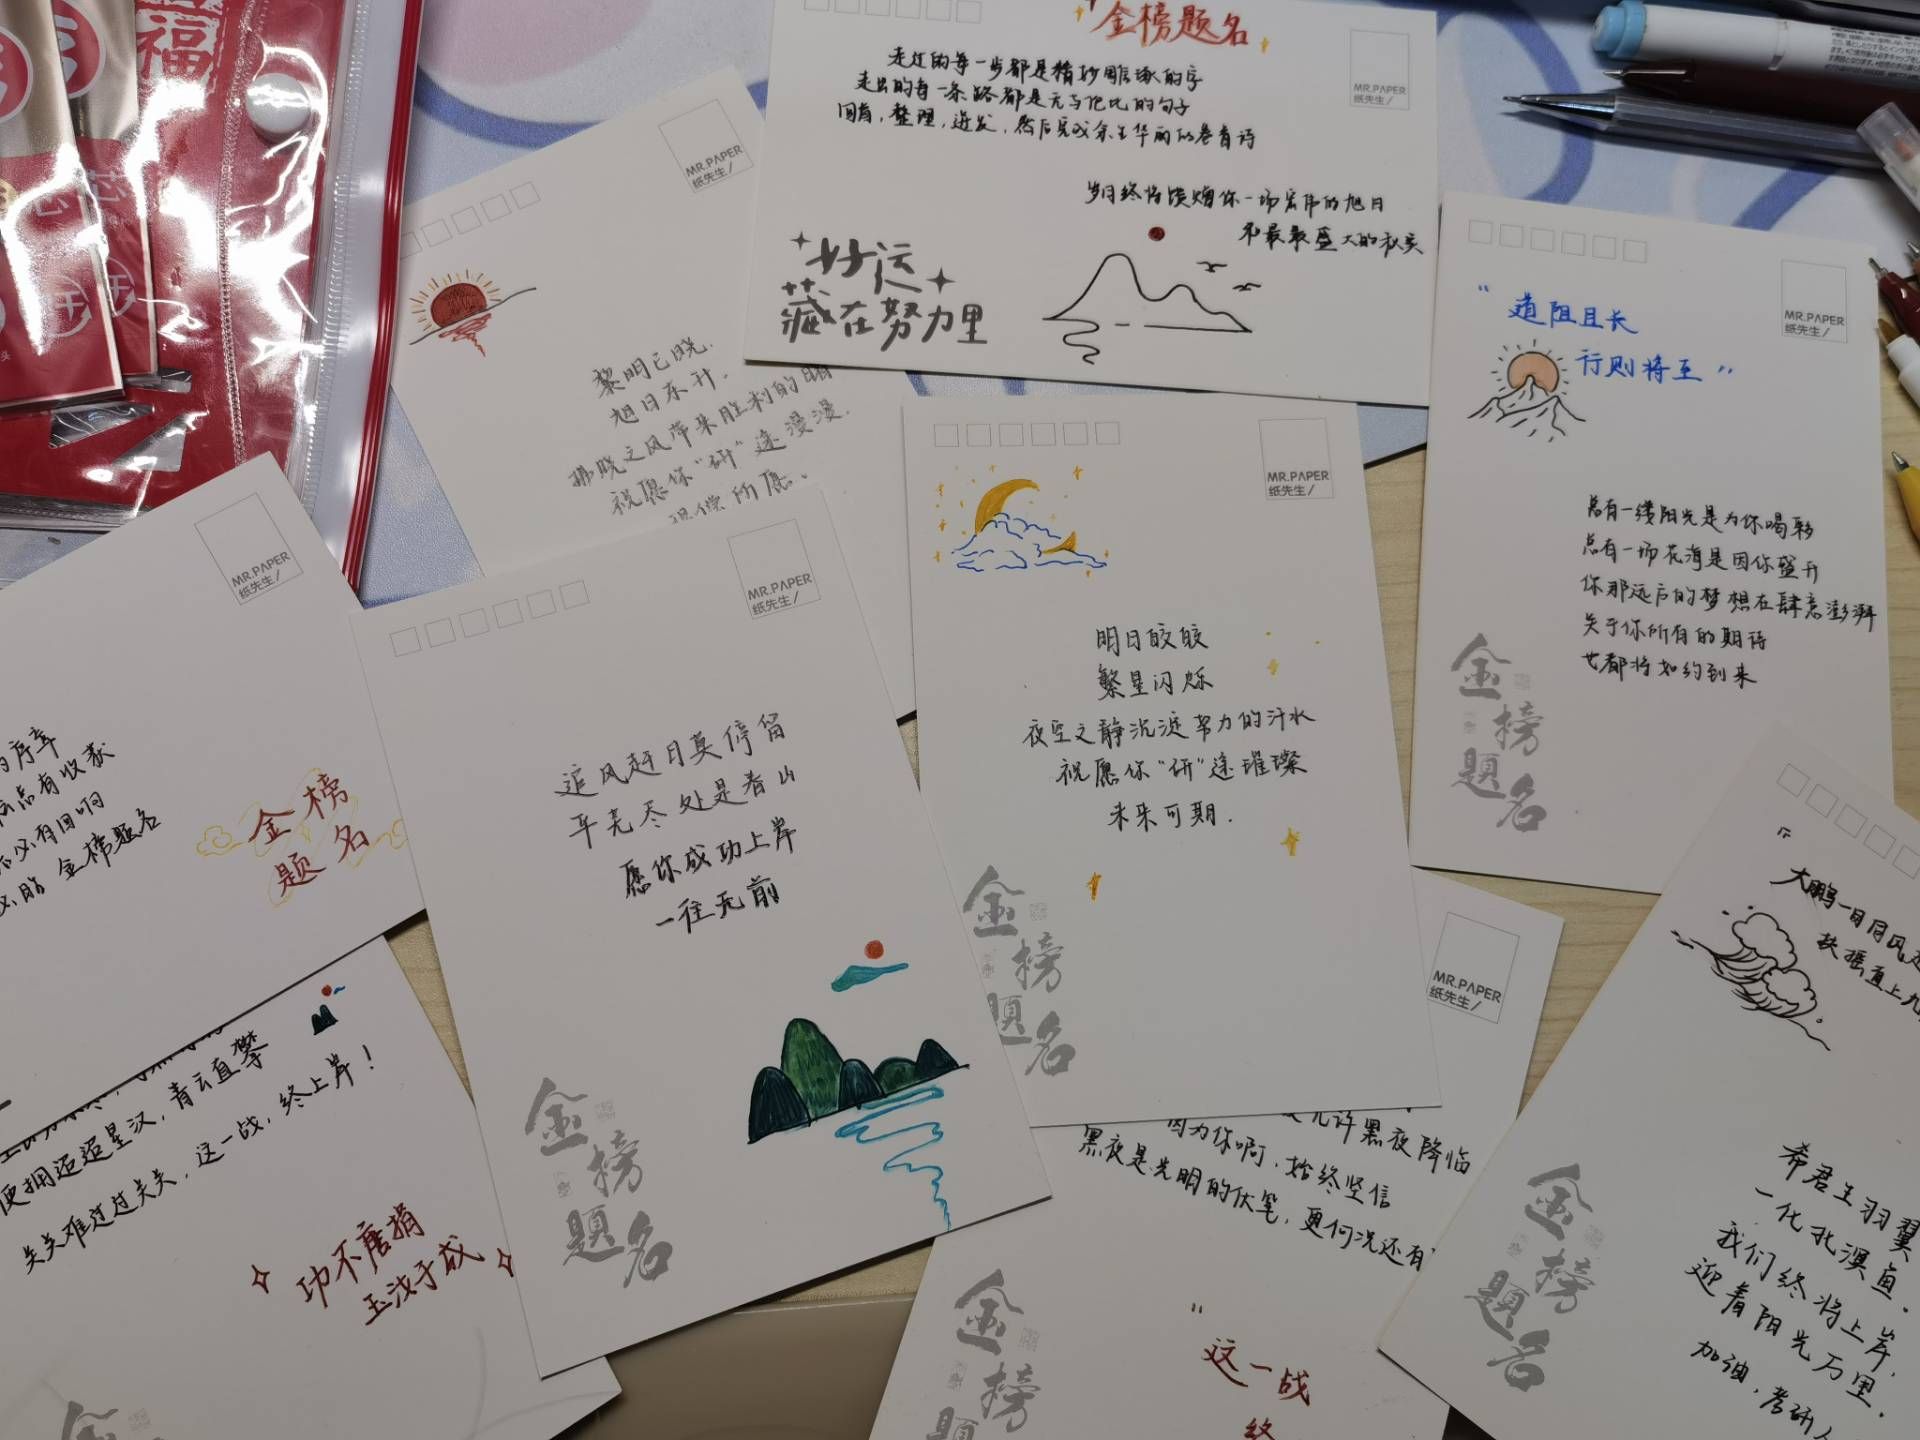 福
芯
金榜题名
走过的每一步都是精妙雕琢的字
走出的每一条路都是无与伦比的句子
回首，整理，迸发，然后完成余生华丽的卷首诗
岁月终将馈赠你一场宏伟的旭日
和最最盛大的秋实
好运
藏在努力里
MR.PAPER
纸先生/
MR.PAPER
纸先生/
黎明已晓，
旭日东升，
拂晓之风带来胜利的
祝愿你“研”途漫漫，
得偿所愿、
MR.PAPER
纸先生/
“道阻且长
行则将至”
总有一缕阳光是为你
总有一场花海是因你盛开
你那远方的梦想在肆意澎湃
关于你所有的期待
也都将如约到来
金榜題名
MR.PAPER
纸先生/
的序章
总有收获
必有回响
金榜题名
金榜
题名
MR.PAPER
纸先生/
追风赶日莫停留
平芜尽处是春山
愿你成功上岸
一往无前
金榜題名
MR.PAPER
纸先生/
明日皎皎
繁星闪烁
夜空之静沉淀努力的汗水
祝愿你“研”途璀璨
未来可期.
金榜題名
便拥迢迢星汉，青云直攀
关关难过过关关，这一战，终上岸！
功不唐捐
玉汝于成
金
MR.PAPER
纸先生/
允许黑夜降临
因为你啊，始终坚信
黑夜是光明的伏笔，更何况还有
“这一战
终
金榜題
“大鹏一日同风起
扶摇直上九
希君生羽翼
一化北溟鱼.
我们终将上岸，
迎着阳光万里.
加油，考研人
金榜題名